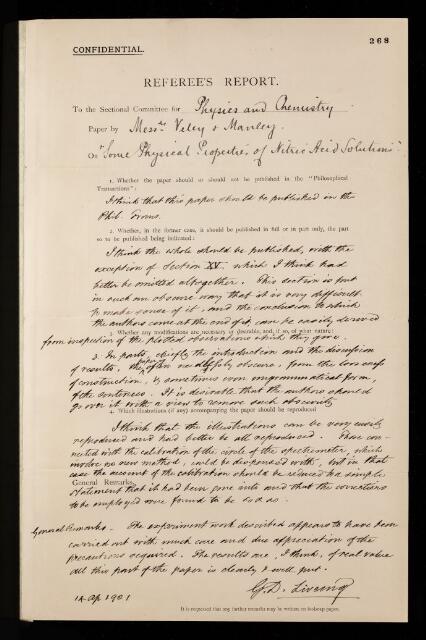 268
CONFIDENTIAL.
REFEREE'S REPORT.
To the Sectional Committee for Physics and Chemistry
Paper by Mess^rs Veley & Manley.
On "Some Physical Properties of Nitric Acid Solutions".
1. Whether the paper should or should not be published in the "Philosophical
Transactions":
I think that this paper should be published in the
Phil. Trans.
2. Whether, in the former case, it should be published in full or in part only, the part
so to be published being indicated:
I think the whole should be published, with the
exception of Section XV. which I think had
better be omitted altogether. This section is put
in such an obscure way that it is very difficult
to make sense of it, and the conclusion to which
the authors come at the end of it, can be easily derived
3. Whether any modifications are necessary or desirable, and, if so, of what nature:
from inspection of the plotted observations which they give.
3. In parts, chiefly the introduction and the discussion
of results, the paper is needlessly obscure, from the loose
of construction, & sometimes even ungrammatical form,
of the sentences. It is desirable that the authors should
go over it with a view to remove such obscurity
4. Which illustrations (if any) accompanying the paper should be reproduced
I think that the illustrations can be very easily
reproduced and had better be all reproduced. Those con-
nected with the calibration of the circle of the spectrometer, which
involve no new method, could be dispensed with, but in that
case the account of the calibration should be reduced to a simple
General Remarks.
statement that it had been gone into and that the corrections
to be employed were found to be so & so.
General Remarks - The experiment work described appears to have been
carried out with much care and due appreciation of the
precautions required. The results are, I think, of real value
all this part of the paper is clearly & well put.
G. D. Liveing
14 Ap 1901
It is requested that any further remarks may be written on foolscap paper.